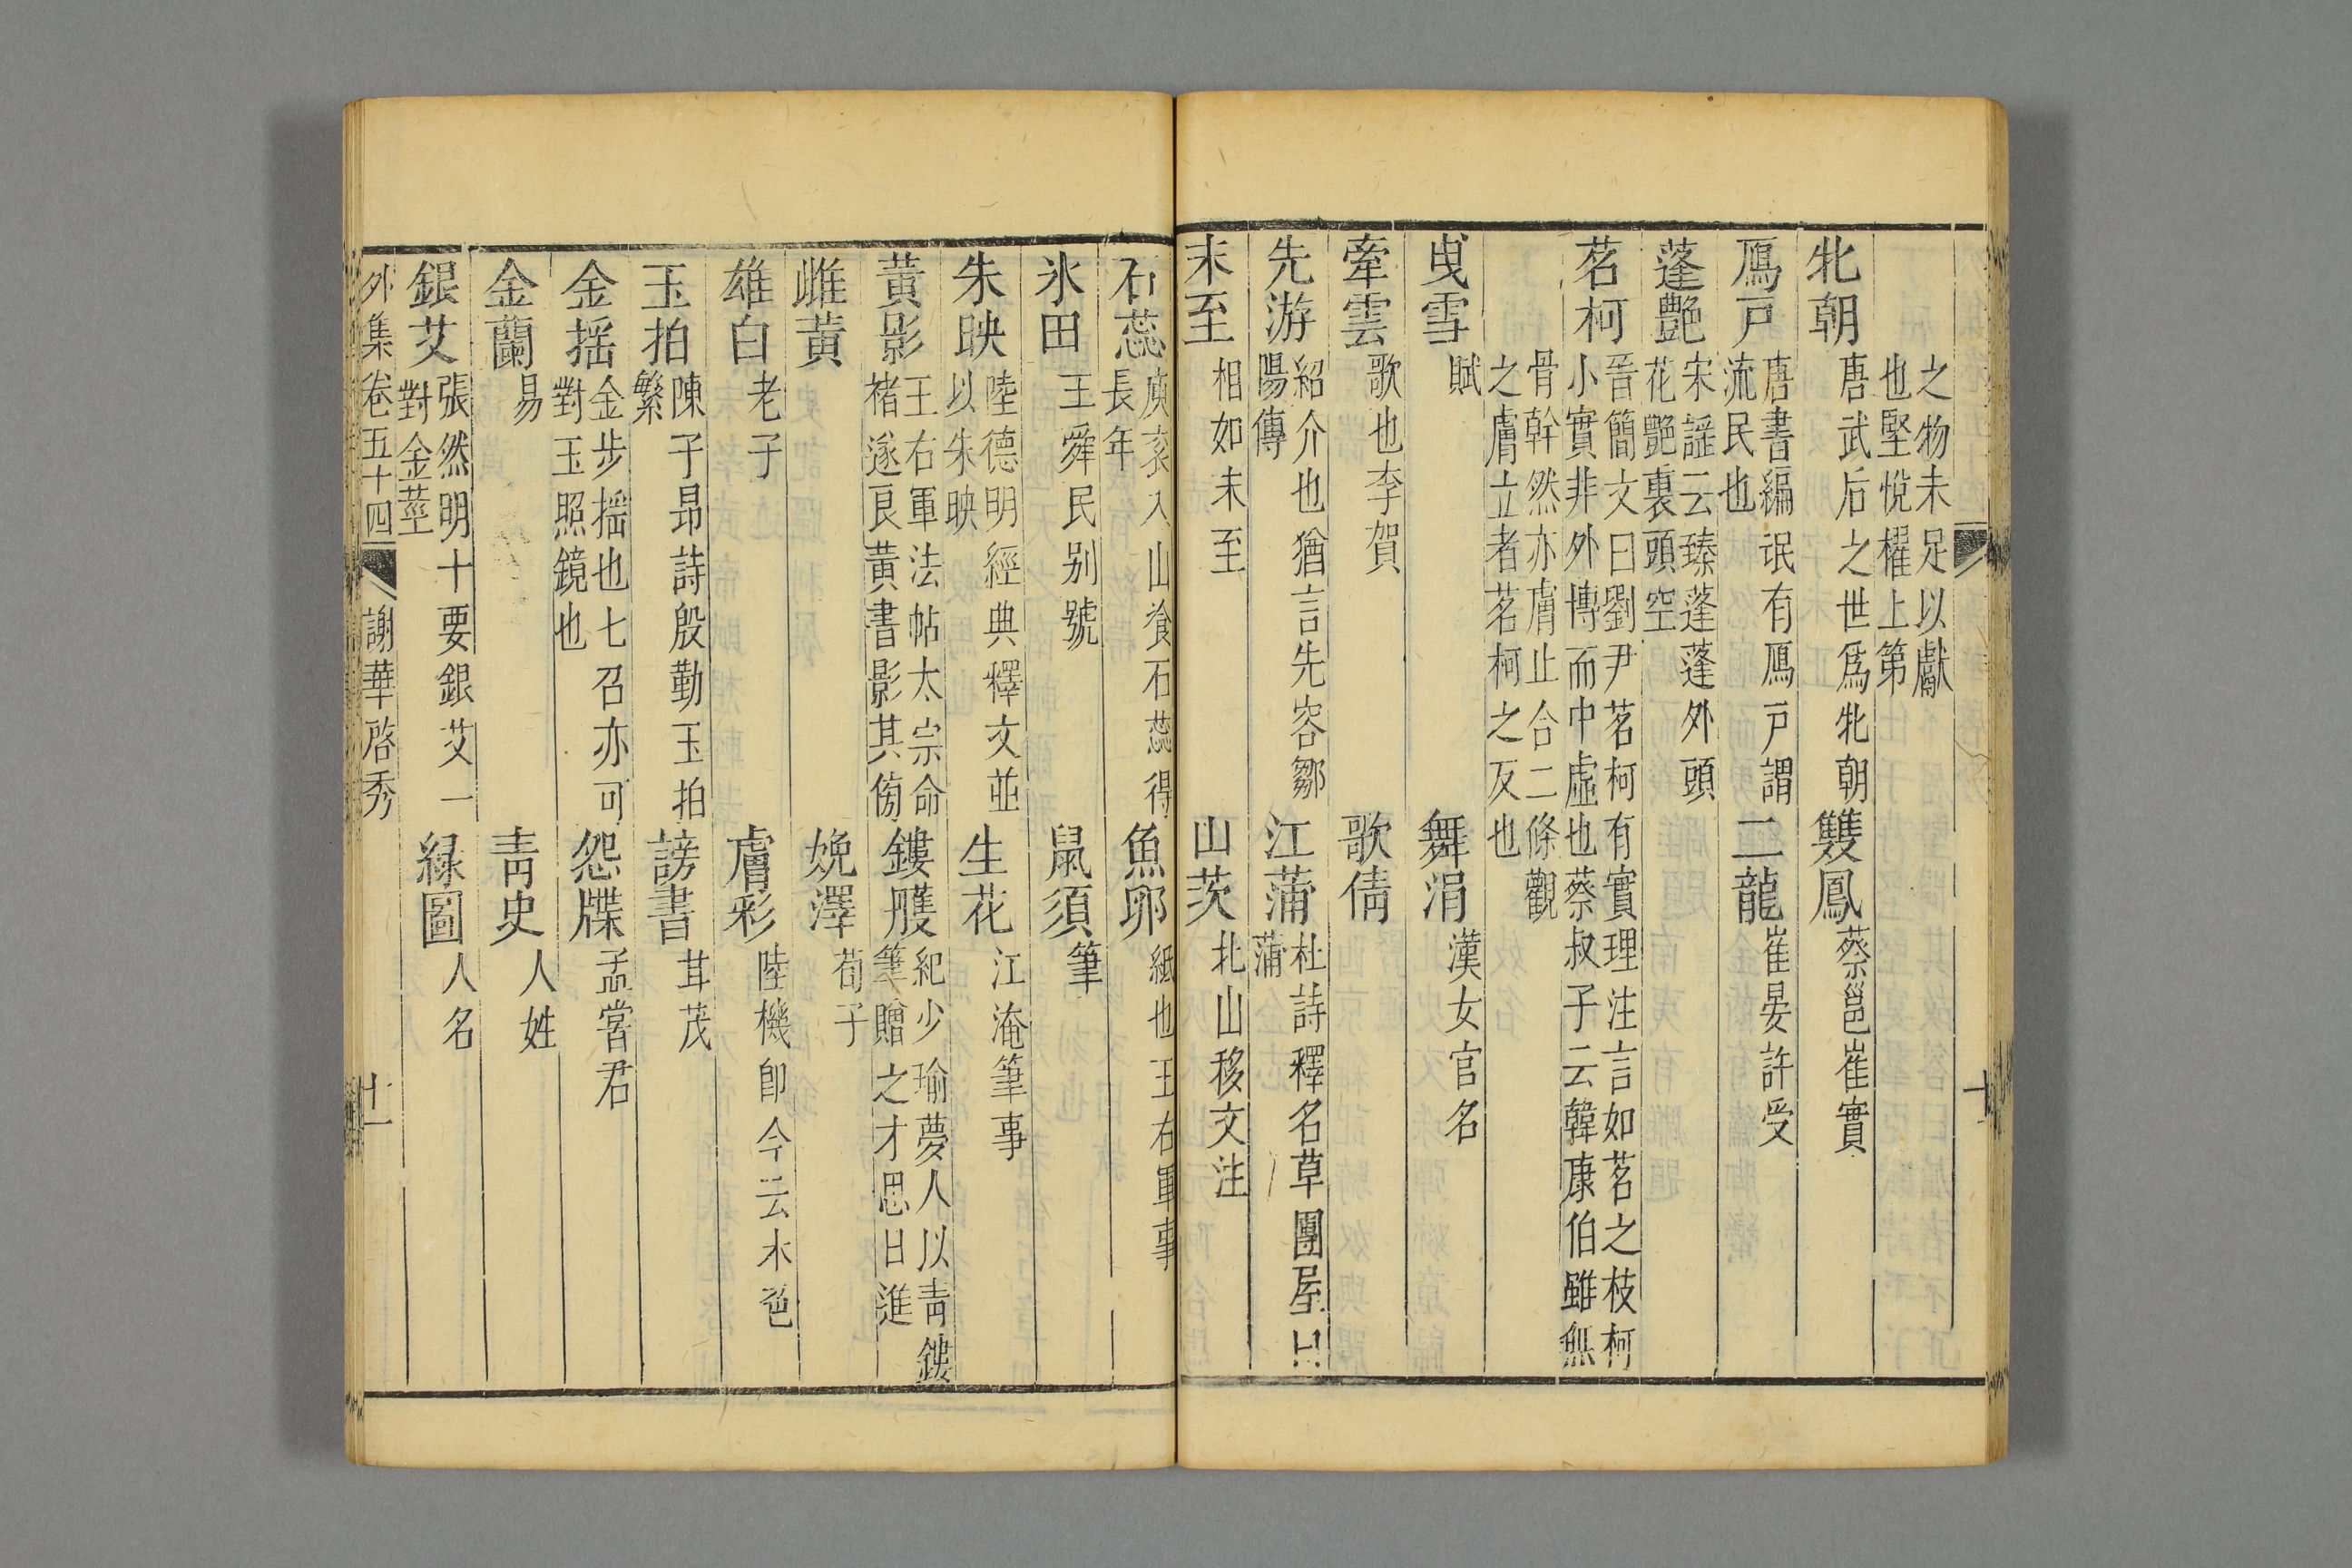 之物未足以獻
也堅悅櫂上第
牝朝
唐武后之世爲牝朝
雙鳳
蔡邕崔實
鴈戸
唐書編氓有鴈戸謂
流民也
二龍
崔晏許受
蓬艶
宋謡云臻蓬蓬外頭
花艶裏頭空
茗柯
晉簡文曰劉尹茗柯有實理注言如茗之枝柯
小實非外博而中虛也蔡叔子云韓康伯雖無
骨幹然亦膚止合二條觀
之膚立者茗柯之反也
曳雪
賦
舞涓
漢女官名
牽雲
歌也李賀
歌倩
先游
紹介也猶言先容鄒
陽傳
江蒲
杜詩釋名草團屋曰
蒲
末至
相如末至
山茨
北山移文注
石蕊
庾袞入山飡石蕊得
長年
魚卵
紙也王右軍事
氷田
王舜民别號
鼠須
筆
朱映
陸德明經典釋文並
以朱映
生花
江淹筆事
黃影
王右軍法帖太宗命
褚遂良黃書影其傍
鏤雘
紀少瑜夢人以青鏤
筆贈之才思日進
雌黃
娩澤
荀子
雄白
老子
膚彩
陸機卽今云木色
玉拍
陳子昂詩殷勤玉拍
繁
謗書
茸茂
金摇
金步摇也七召亦可
對玉照鏡也
怨牒
孟嘗君
金蘭
易
青史
人姓
銀艾
張然明十要銀艾一
對金莖
緑圖
人名
外集卷五十四
謝華啓秀
十一